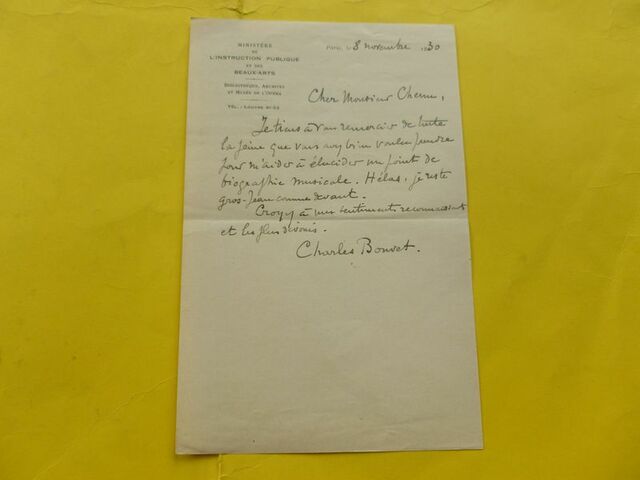 MINISTÈRE
DE
L'INSTRUCTION PUBLIQUE
ET DES
BEAUX-ARTS
BIBLIOTHÈQUE, ARCHIVES
ET MUSÉE DE L'OPÉRA
TÉL. : LOUVRE
Paris, le 8 novembre 1930
Cher Monsieur
Je tiens à vous remercier de toute
la peine que vous avez bien voulu prendre
pour m'aider à élucider un point de
biographie musicale. Hélas, je reste
gros-Jean comme devant.
Croyez à mes sentiments reconnaissants
et les plus dévoués.
Charles Bouvet.